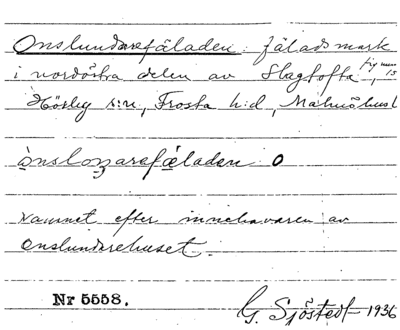 Onslundarefäladen. Fäladsmark
i nordöstra delen av Slagtofta,
Hörby s:n, Frosta h:d, Malmöhus l
ònsloṇarefä̀laden O
Namnet efter innehavaren av
Onslundehuset.
Nr 5558.
G. Sjöstedt 1936